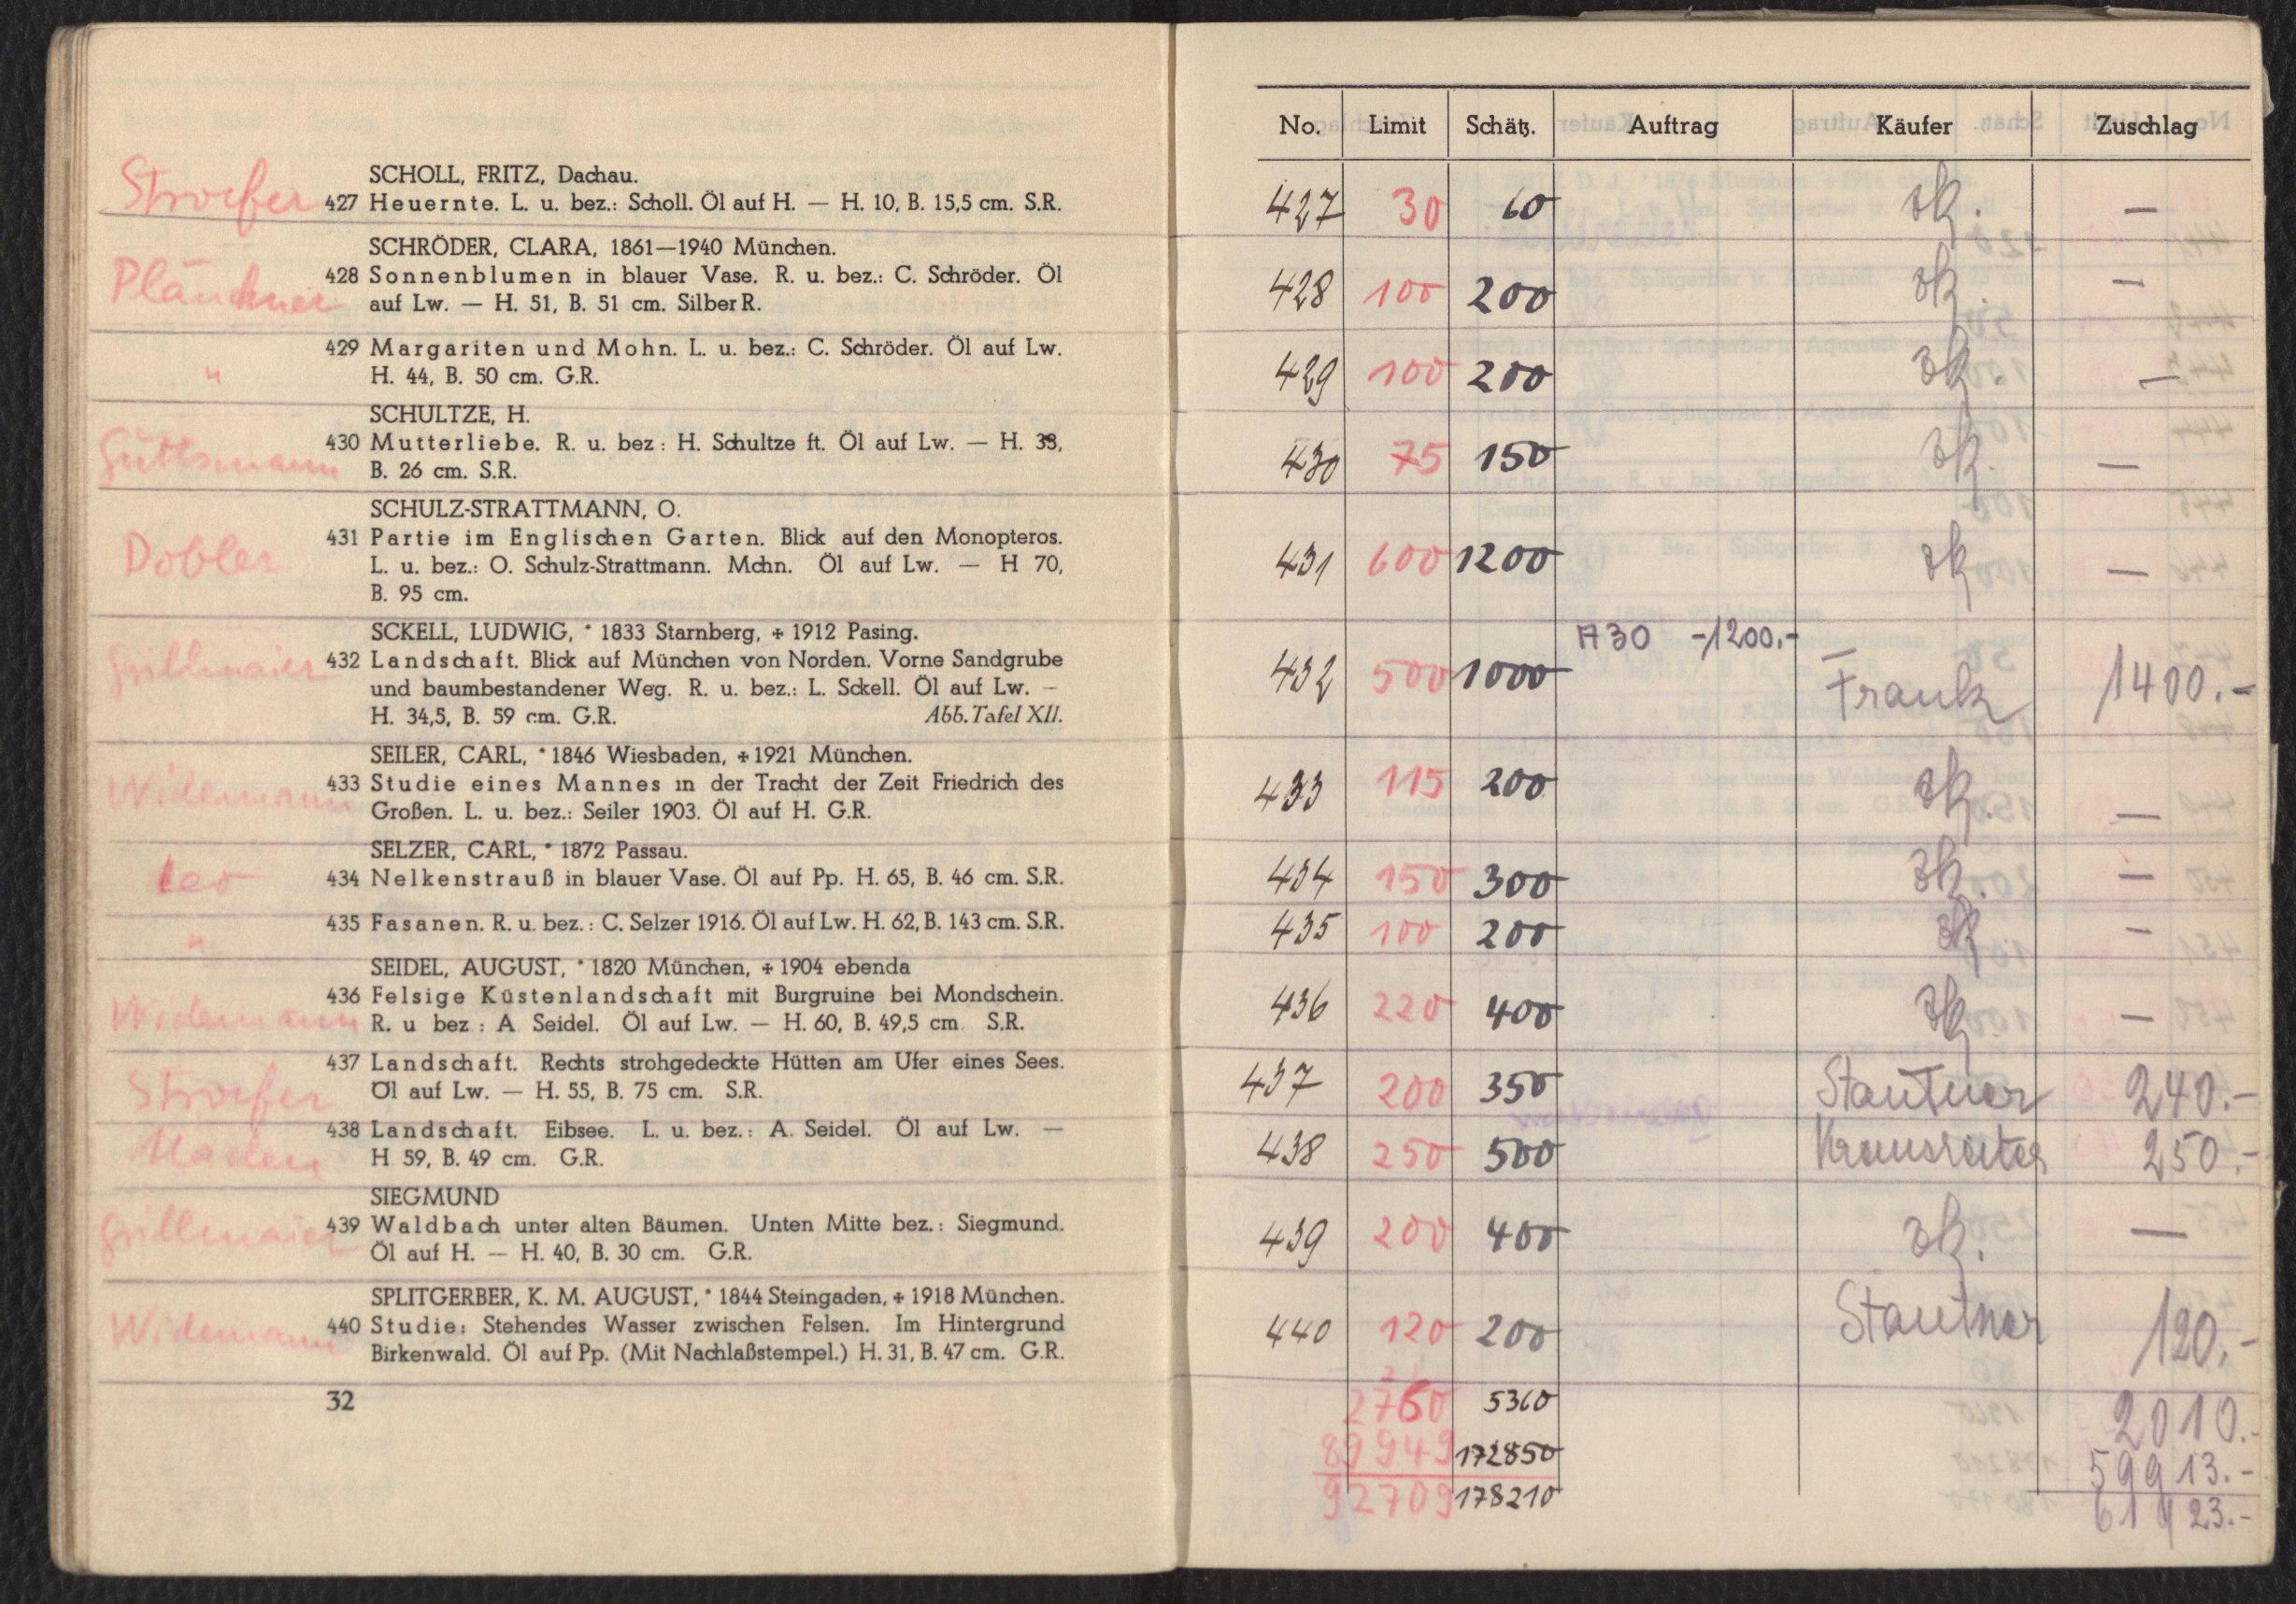 Stroefer
SCHOLL, FRITZ, Dachau.
427 Heuernte. L. u. bez.: Scholl. Öl auf H. — H. 10, B. 15,5 cm. S.R.
SCHRÖDER, CLARA, 1861—1940 München.
Plänckner
428 Sonnenblumen in blauer Vase. R. u. bez.: C. Schröder. Öl
auf Lw. — H. 51, B. 51 cm. Silber R.
429 Margariten und Mohn. L. u. bez.: C. Schröder. Öl auf Lw.
" H. 44, B. 50 cm. G.R.
SCHULTZE, H.
430 Mutterliebe. R. u. bez : H. Schultze ft. Öl auf Lw. — H. 33,
Güttsmann B. 26 cm. S.R.
SCHULZ-STRATTMANN, O.
431 Partie im Englischen Garten. Blick auf den Monopteros.
Dobler L. u. bez.: O. Schulz-Strattmann. Mchn. Öl auf Lw. — H 70,
B. 95 cm.
SCKELL, LUDWIG, * 1833 Starnberg, + 1912 Pasing.
Grillmaier 432 Landschaft. Blick auf München von Norden. Vorne Sandgrube
und baumbestandener Weg. R. u. bez.: L. Sckell. Öl auf Lw. —
H. 34,5, B. 59 cm. G.R. Abb. Tafel XII.
SEILER, CARL, * 1846 Wiesbaden, + 1921 München.
Widemann 433 Studie eines Mannes in der Tracht der Zeit Friedrich des
Großen. L. u. bez.: Seiler 1903. Öl auf H. G.R.
SELZER, CARL, * 1872 Passau.
Leo 434 Nelkenstrauß in blauer Vase. Öl auf Pp. H. 65, B. 46 cm. S.R.
" 435 Fasanen. R. u. bez.: C. Selzer 1916. Öl auf Lw. H. 62, B. 143 cm. S.R.
SEIDEL, AUGUST, * 1820 München, + 1904 ebenda
436 Felsige Küstenlandschaft mit Burgruine bei Mondschein.
Widemann R. u bez : A Seidel. Öl auf Lw. — H. 60, B. 49,5 cm. S.R.
437 Landschaft. Rechts strohgedeckte Hütten am Ufer eines Sees.
Stroefer Öl auf Lw. — H. 55, B. 75 cm. S.R.
438 Landschaft. Eibsee. L. u. bez.: A. Seidel. Öl auf Lw. —
H 59, B. 49 cm. G.R.
SIEGMUND
Grillmaier 439 Waldbach unter alten Bäumen. Unten Mitte bez.: Siegmund.
Öl auf H. — H. 40, B. 30 cm. G.R.
SPLITGERBER, K. M. AUGUST, * 1844 Steingaden, + 1918 München.
Widemann 440 Studie: Stehendes Wasser zwischen Felsen. Im Hintergrund
Birkenwald. Öl auf Pp. (Mit Nachlaßstempel.) H. 31, B. 47 cm. G.R.
32
No. Limit Schätz. Auftrag Käufer Zuschlag
427 30 60 zk. —
428 100 200 zk. —
429 100 200 zk. —
430 75 150 zk. —
431 600 1200 zk —
A30 -1200.-
432 500 1000 Frank 1400.-
433 115 200 zk. —
434 150 300 zk. —
435 100 200 zk —
436 220 400 zk —
437 200 350 Stautner 240.-
438 250 500 250.-
439 200 400 zk. —
440 120 200 Stautner 120.-
2760 5360 2010.-
89949 172850 59913.-
92709 178210